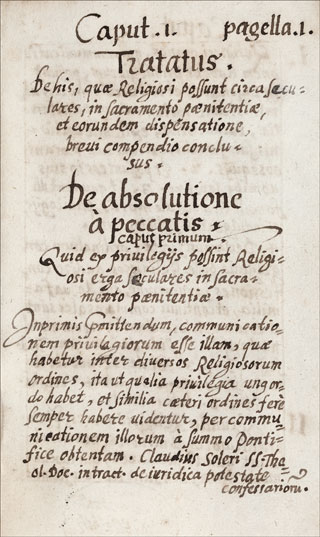 Caput .1. pagella.1.
Tratatus.
De his, quæ Religiosi possunt circa secu-
lares, in sacramento pænitentiæ,
et eorundem dispensatione,
brevi compendio conclu-
sus.
De absolutione
à peccatis.
caput primum.
Quid ex privilegijs possint Religi-
osi erga seculares in sacra-
mento pænitentiæ.
Inprimis
communicatio-
nem privilagiorum esse illam, quæ
habetur inter diversos Religiosorum
ordines, ita ut qualia privilegia un
ordo habet, et similia cæteri ordines fere
semper habere videntur, per commu-
nicationem illorum à summo Ponti-
fice obtentam. Claudius Soleri SS. Tha
ol. Doc. in tract. de iuridica potestate
confessarioru.